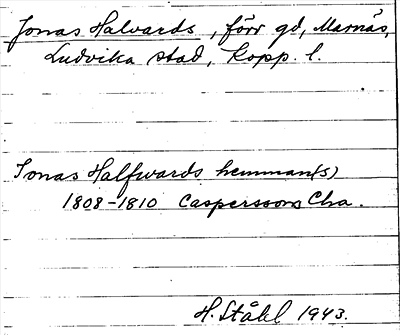 Jonas Halvards, förr gd, Marnäs,
Ludvika stad, Kopp. l.
Jonas Halfwards hemman(s)
1808-1810 Casperssons Cha.
H. Ståhl 1943.